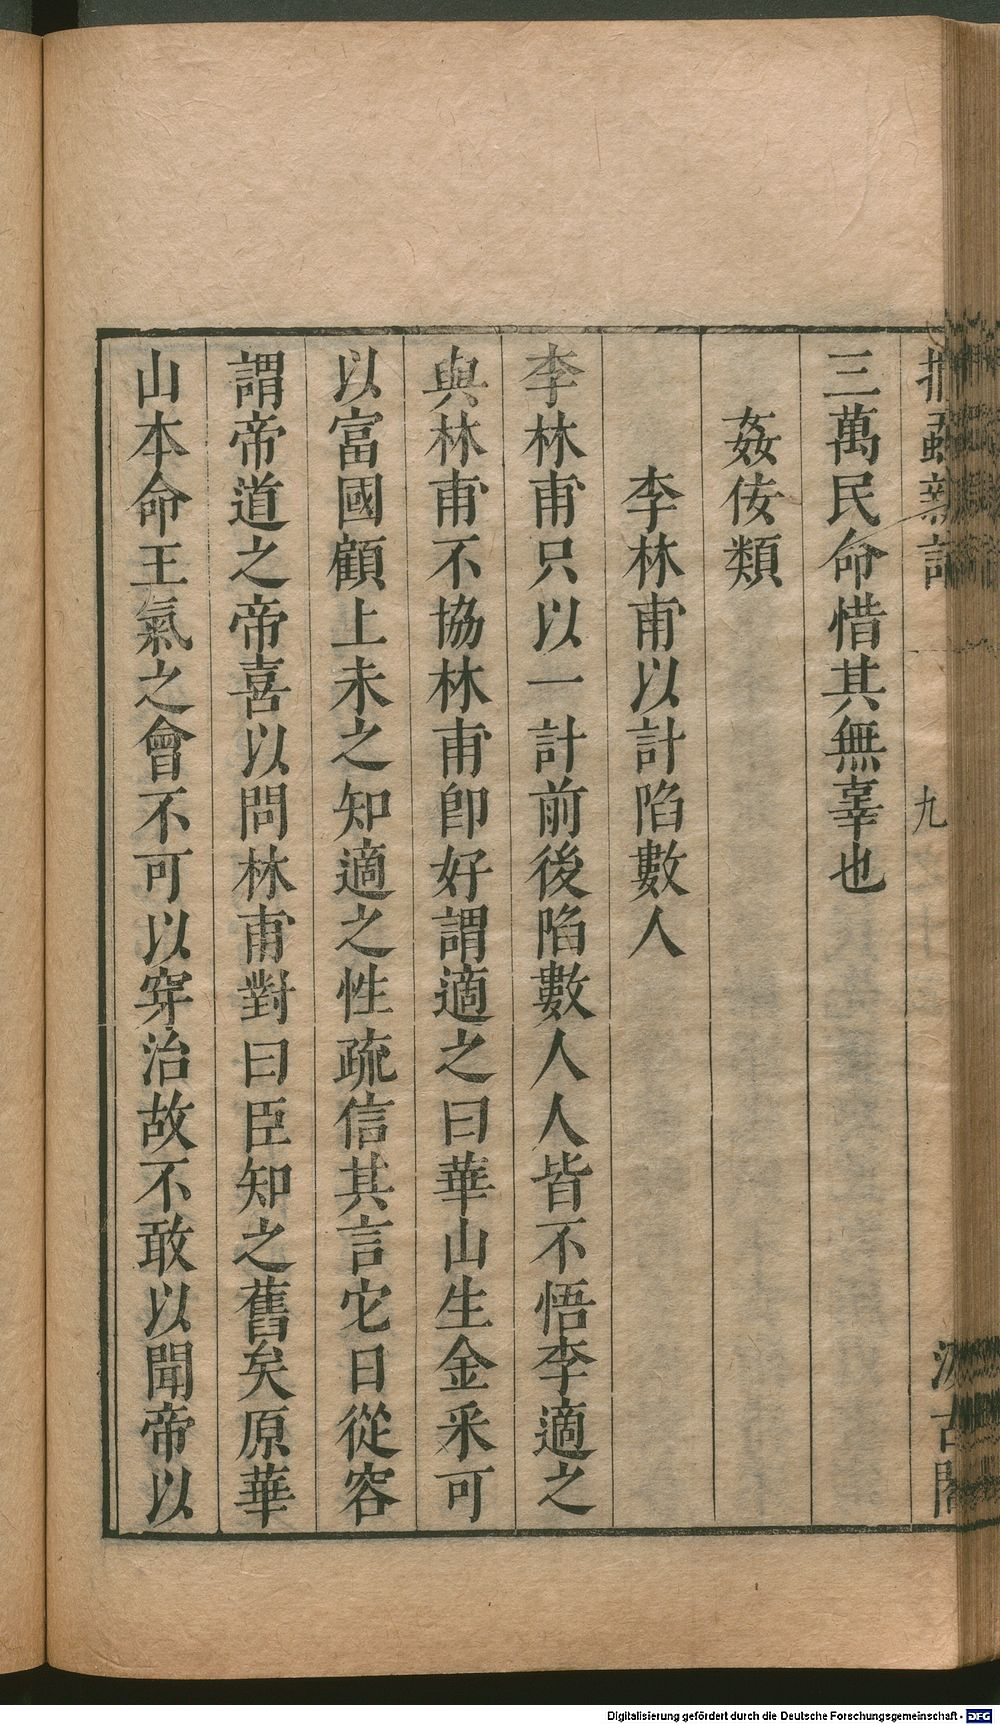 捫蝨新話
九
汲古閣
三萬民命惜其無辜也
姦佞類
李林甫以計陷數人
李林甫只以一計前後陷數人人皆不悟李適之
與林甫不協林甫卽好謂適之曰華山生金采可
以富國顧上未之知適之性疏信其言它日從容
謂帝道之帝喜以問林甫對曰臣知之舊矣原華
山本命王氣之會不可以穿治故不敢以聞帝以
Digitalisierung gefördert durch die Deutsche Forschungsgemeinschaft - DFG